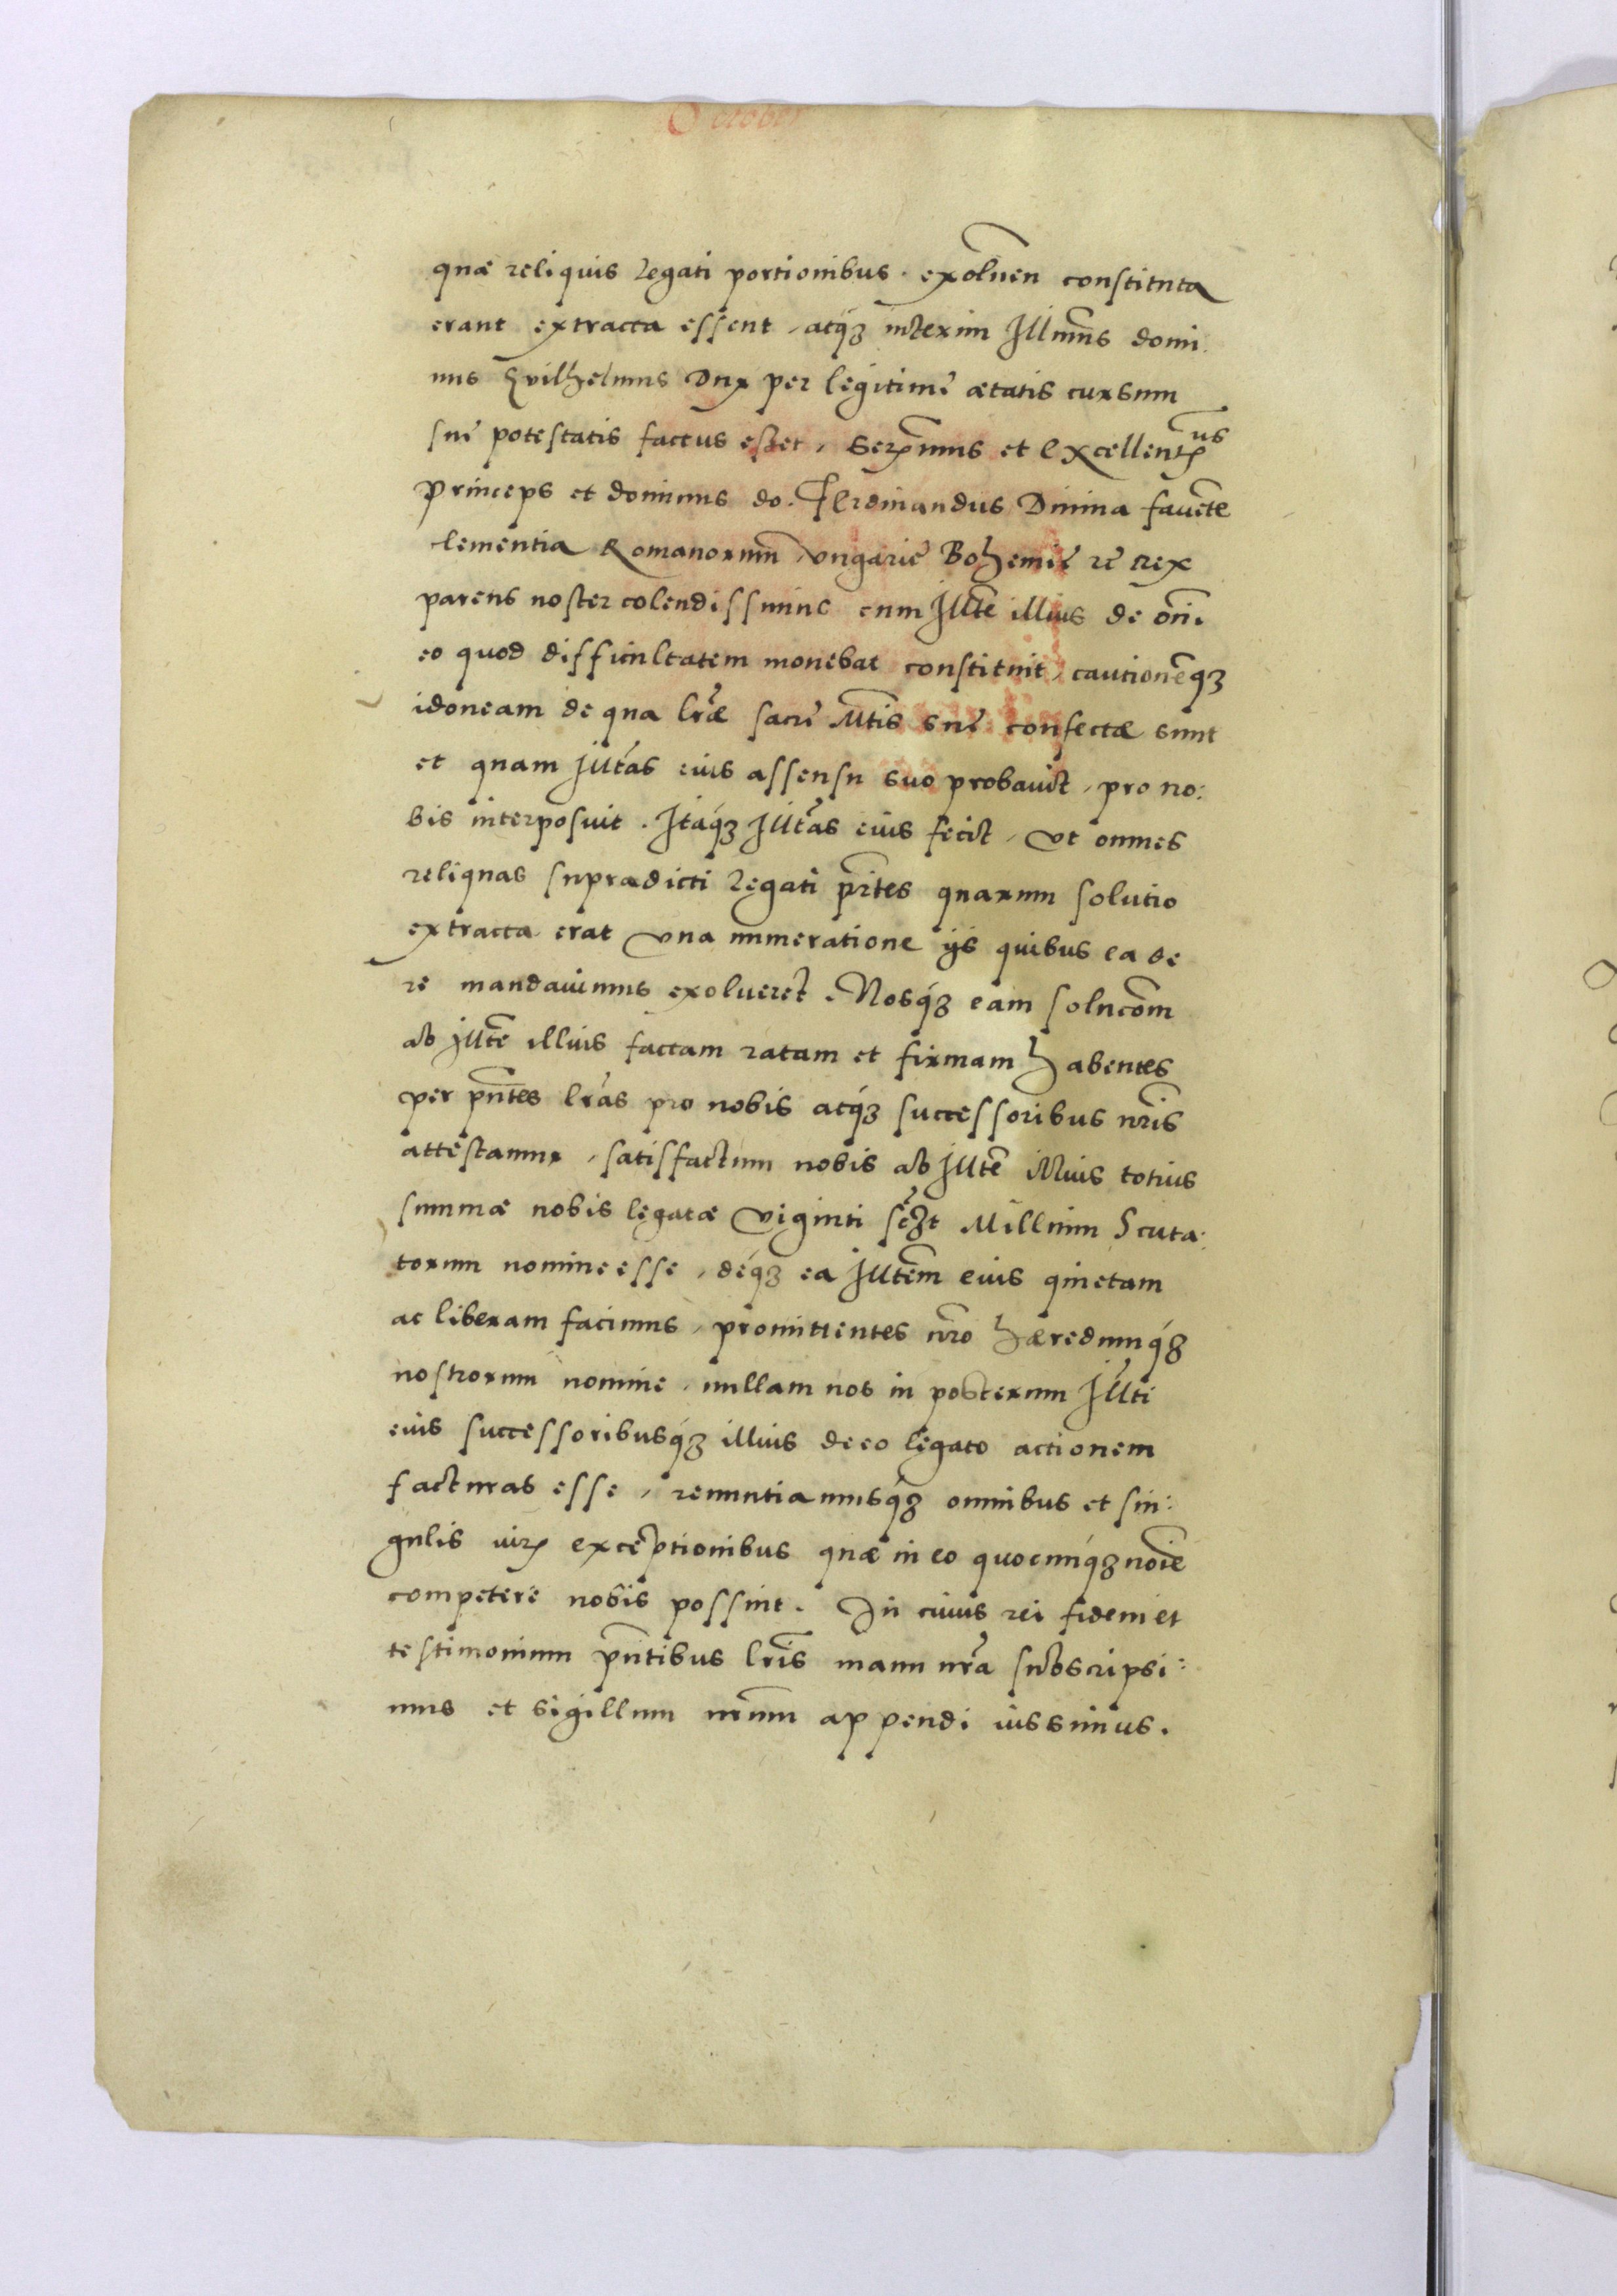 October
quæ reliquis legati portionibus. exoluen̄ constituta
erant extracta essent, atq́ꝫ interim Illm̄us domi
nus Gvilhelmus Dux per legitimę ætatis cursum
suę potestatis factus esset, Serᵉⁿmus et Excellentᵘˢ
Princeps et dominus do. Ferdinandus Diuina fauēte
clementia Romanorum̄ Vngarię Bohemię zc̄ Rex
parens noster colendissimus cum Illt̄e illius de om̄i
eo quod difficultatem mouebat constituit, cautionēqꝫ
idoneam de qua lr̄æ sacrę Mt̄is suę confectæ sunt
et quam Illt̄as eius assensu suo probauit, pro no:
bis interposuit. Itaq́ꝫ Illt̄as eius fecit, vt omnes
reliquas supradicti legati pr̄tes quarum solutio
extracta erat vna numeratione ijs quibus ea de
re mandauimus exolueret. Nosq́ꝫ eam solucōm
ab Illt̄e illius factam ratam et firmam habentes
per pn̄tes lr̄as pro nobis atq́ꝫ successoribus nr̄is
attestamur, satisfactum nobis ab Illt̄e illius totius
summæ nobis legatæ viginti Millium Scuta:
torum nomine esse, deq́ꝫ ea Illt̄em eius quietam
ac liberam facimus, promittentes nr̄o hæredumq́ꝫ
nostrorum nomine, nullam nos in posterum Illt̄i
eius successoribusq́ꝫ illius de eo legato actionem
facturas esse, renuntiamusq́ꝫ omnibus et sin:
gulis iurꝭ exceptionibus quæ in eo quocunq́ꝫ noīe
competere nobis possint. In cuius rei fidem et
testimonium pn̄tibus lr̄is manu nr̄a subscripsi:
mus et sigillum nr̄um appendi iussimus.